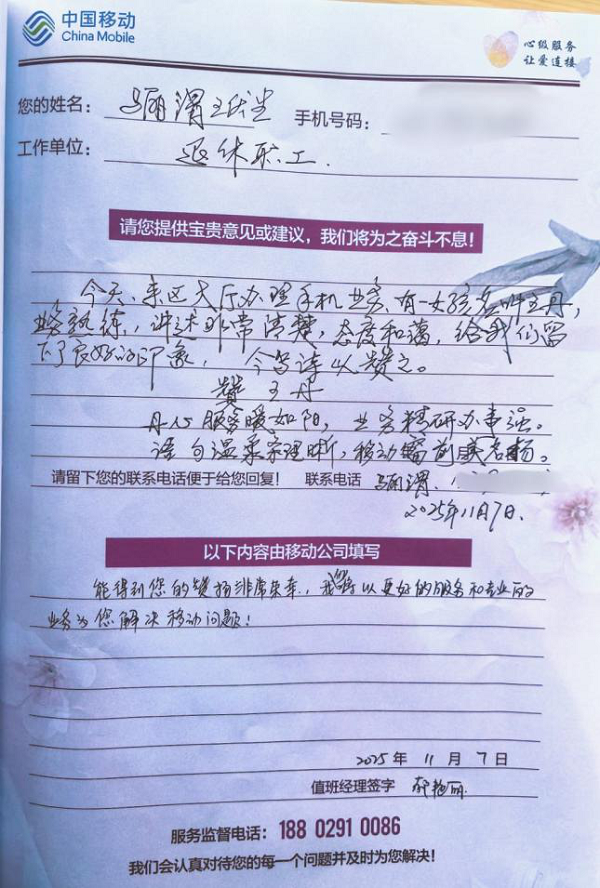 中国移动
China Mobile
心级服务
让爱连接
您的姓名： 骊渭 手机号码：
工作单位： 退休职工.
请您提供宝贵意见或建议，我们将为之奋斗不息！
今天，来区大厅办理手机业务，有一女孩名叫王丹，
业务熟练，讲述非常清楚，态度和蔼，给我们留
下了良好的印象， 今写诗以赞之。
赞王丹
丹心服务暖如阳， 业务精研办事强。
语句温柔条理晰，移动窗前美名扬。
请留下您的联系电话便于给您回复！ 联系电话 骊渭.
2025年11月7日.
以下内容由移动公司填写
能得到您的赞扬非常荣幸，我们将以更好的服务和专业的
业务为您解决移动问题！
2025 年 11 月 7 日
值班经理签字
服务监督电话：188 0291 0086
我们会认真对待您的每一个问题并及时为您解决！